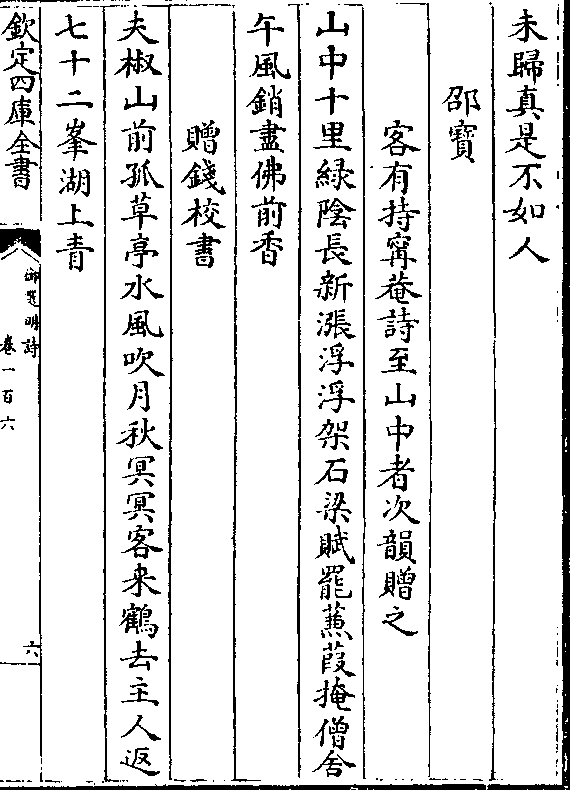 未歸真是不如人
邵寳
客有持寗菴詩至山中者次韻贈之
山中十里緑陰長新漲浮浮架石梁賦罷蒹葭掩僧舍
午風銷盡佛前香
贈錢校書
夫椒山前孤草亭水風吹月秋冥冥客来鶴去主人返
七十二峯湖上青
欽定四庫全書
御選明詩
卷一百六
六